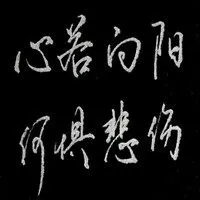 心若向阳
何惧悲伤